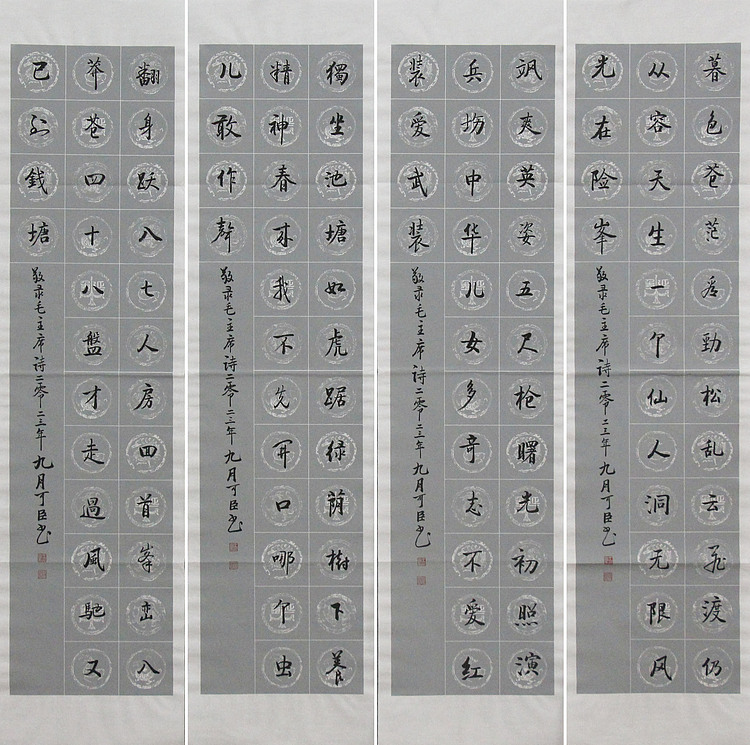 暮色苍茫看勁松乱云飞渡仍
从容天生一个仙人洞无限风
光在险峯
敬录毛主席诗二零二三年九月可臣书
飒爽英姿五尺枪曙光初照演
兵场中华儿女多奇志不爱红
装爱武装
敬录毛主席诗二零二三年九月可臣书
獨坐池塘如虎踞绿荫樹下养
精神春来我不先开口哪个虫
儿敢作聲
敬录毛主席诗二零二三年九月可臣书
翻身跃八七人房四首峯峦八
莽苍四十八盤才走過風馳又
已到錢塘
敬录毛主席诗二零二三年九月可臣书